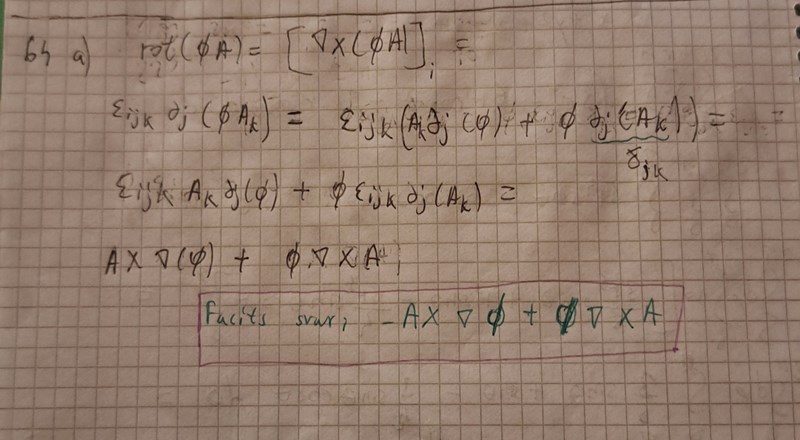 64 a) rot(φA) = [∇×(φA)]i =
εijk ∂j (φAk) = εijk (Ak∂j(φ) + φ ∂j(Ak)) =
δjk
εijk Ak ∂j(φ) + φ εijk ∂j(Ak) =
A×∇(φ) + φ∇×A;
Facits svar; -A×∇φ + φ∇×A